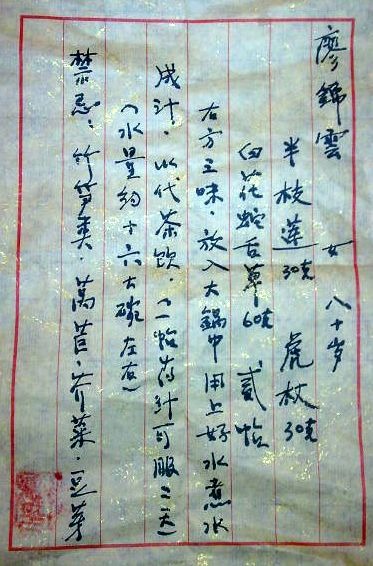 廖錦雲　女　八十岁
半枝蓮30克　虎杖30克
白花蛇舌草60克　貳帖
右方三味，放入大鍋中用上好水煮水
成汁，以代茶飲，（一帖药汁可服二天）
（水量約十六大碗左右）
禁忌：竹笋类．萵苣．芥菜．豆芽